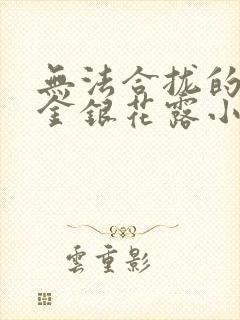 無法合拢的
金銀花露小
雲重影